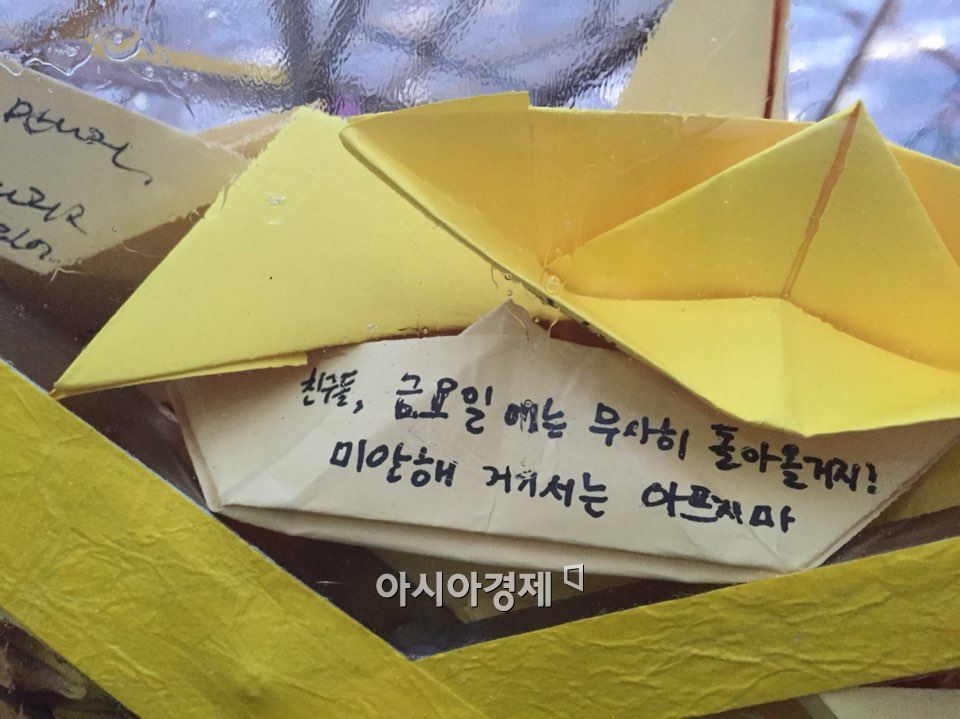 친구들, 금요일에는 무사히 돌아올거지!
미안해 거기서는 아프지마
아시아경제